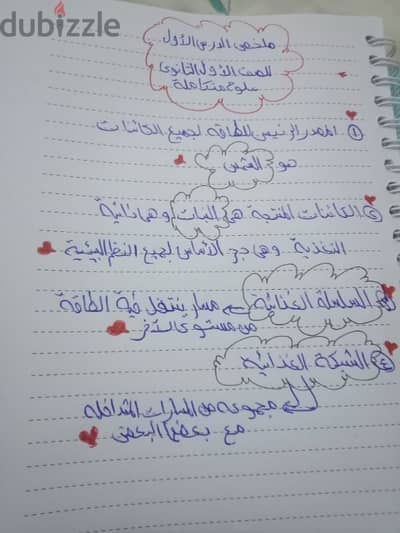 dubizzle
ملخص الدرس الأول
للصف الأول الثانوى
علوم متكاملة
① المصدر الرئيس للطاقة لجميع الكائنات
هو الشمس
② الكائنات المنتجة هى النبات وهى ذاتية
التغذية وهى حجر الأساس لجميع النظم البيئية
③ السلسلة الغذائية مسار ينتقل فية الطاقة
من مستوى لآخر
④ الشبكة الغذائية
مجموعة من المسارات المتداخلة
مع بعضها البعض